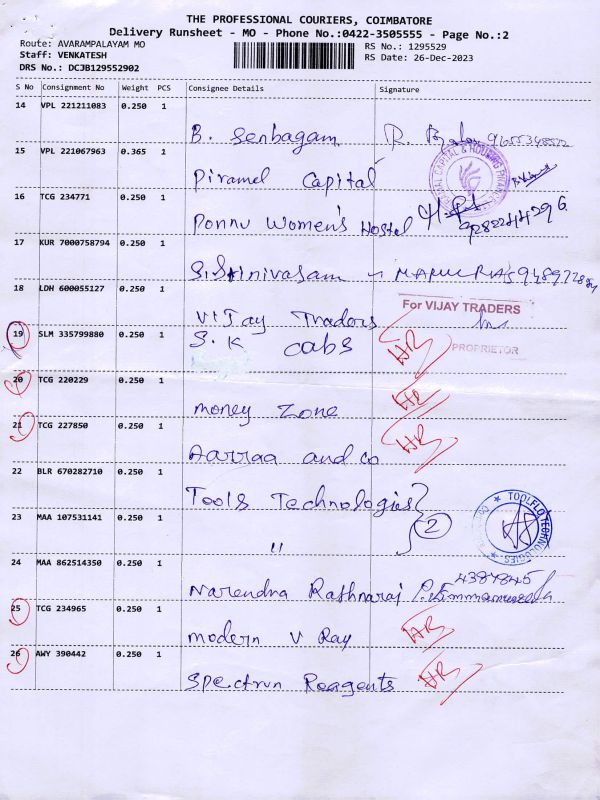 THE PROFESSIONAL COURIERS, COIMBATORE
Delivery Runsheet - MO - Phone No.:0422-3505555 - Page No.:2
Route: AVARAMPALAYAM MO
Staff: VENKATESH
DRS No.: DCJB129552902
RS No.: 1295529
RS Date: 26-Dec-2023
S No Consignment No Weight PCS Consignee Details Signature
14 VPL 221211083 0.250 1
B. Senbagam R.
15 VPL 221067963 0.365 1
Piramel Capital
16 TCG 234771 0.250 1
Ponnu Women's Hostel
17 KUR 7000758794 0.250 1
S. Srinivasam
18 LDH 600055127 0.250 1
For VIJAY TRADERS
VIJay Traders
PROPRIETOR
19 SLM 335799880 0.250 1
S.K cabs HR
20 TCG 220229 0.250 1
money Zone HR
21 TCG 227850 0.250 1
Aarraa and co HR
22 BLR 670282710 0.250 1
Tools Technologies
23 MAA 107531141 0.250 1
" 2
TOOLFLO TECHNOLOGIES
24 MAA 862514350 0.250 1
4387845
Narendra Rathnaraj
25 TCG 234965 0.250 1
modern V Ray HR
26 AWY 390442 0.250 1
Spectrun Reagents HR